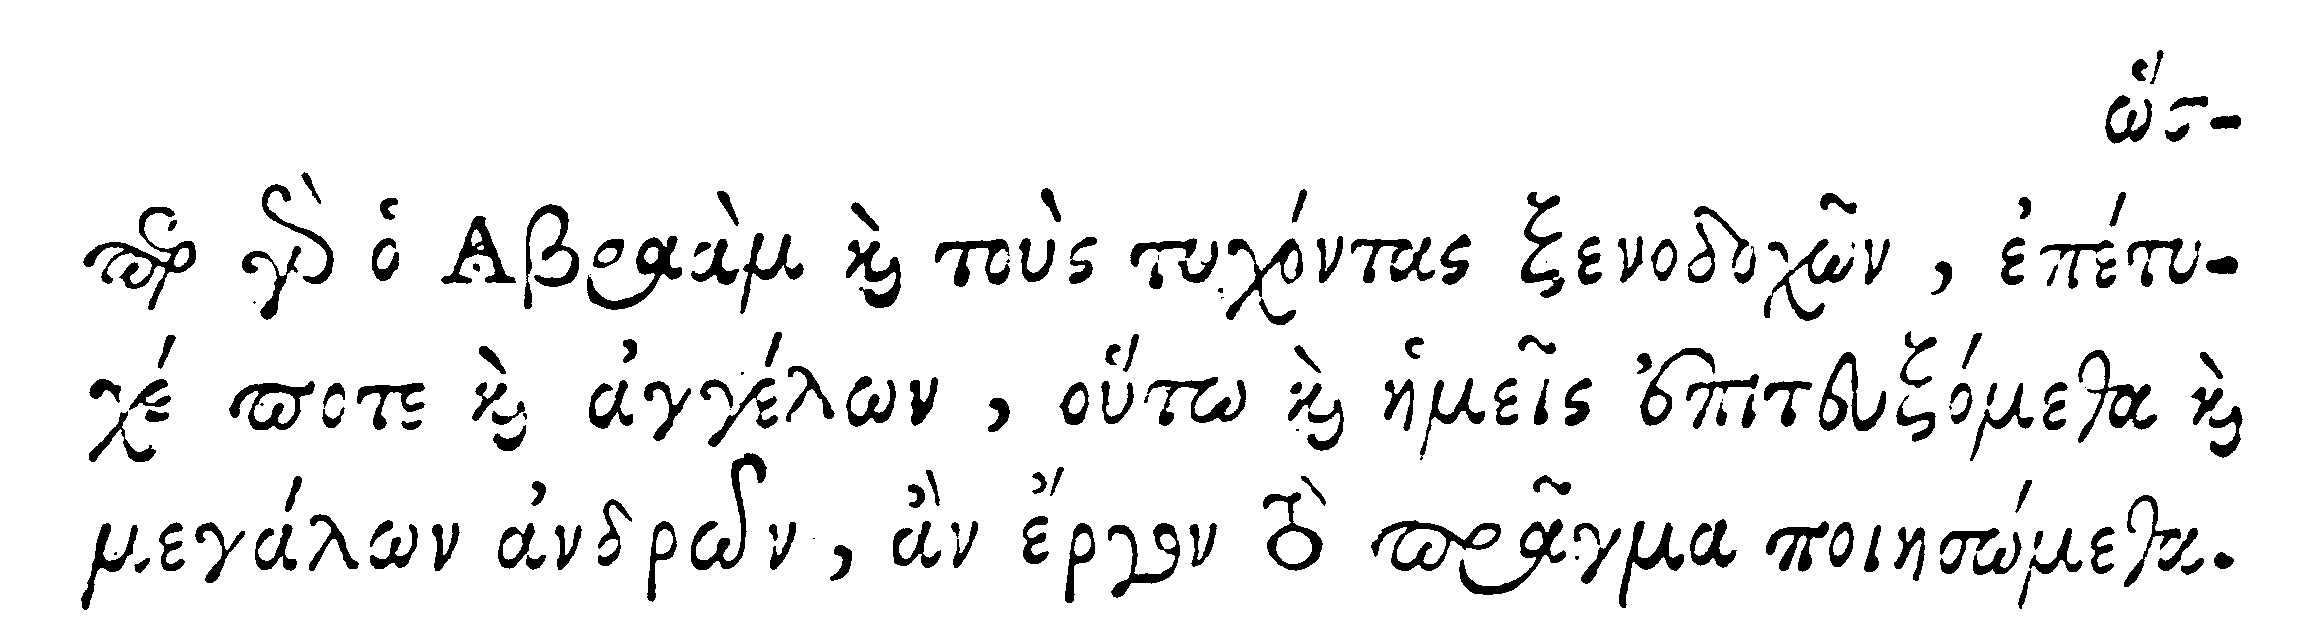 ὥσ-
περ γὰρ ὁ Ἀβραὰμ καὶ τοὺς τυχόντας ξενοδοχῶν, ἐπέτυ-
χέ ποτε καὶ ἀγγέλων, οὕτω καὶ ἡμεῖς ἐπιτευξόμεθα καὶ
μεγάλων ἀνδρῶν, ἂν ἔργον τὸ πρᾶγμα ποιησώμεθα.